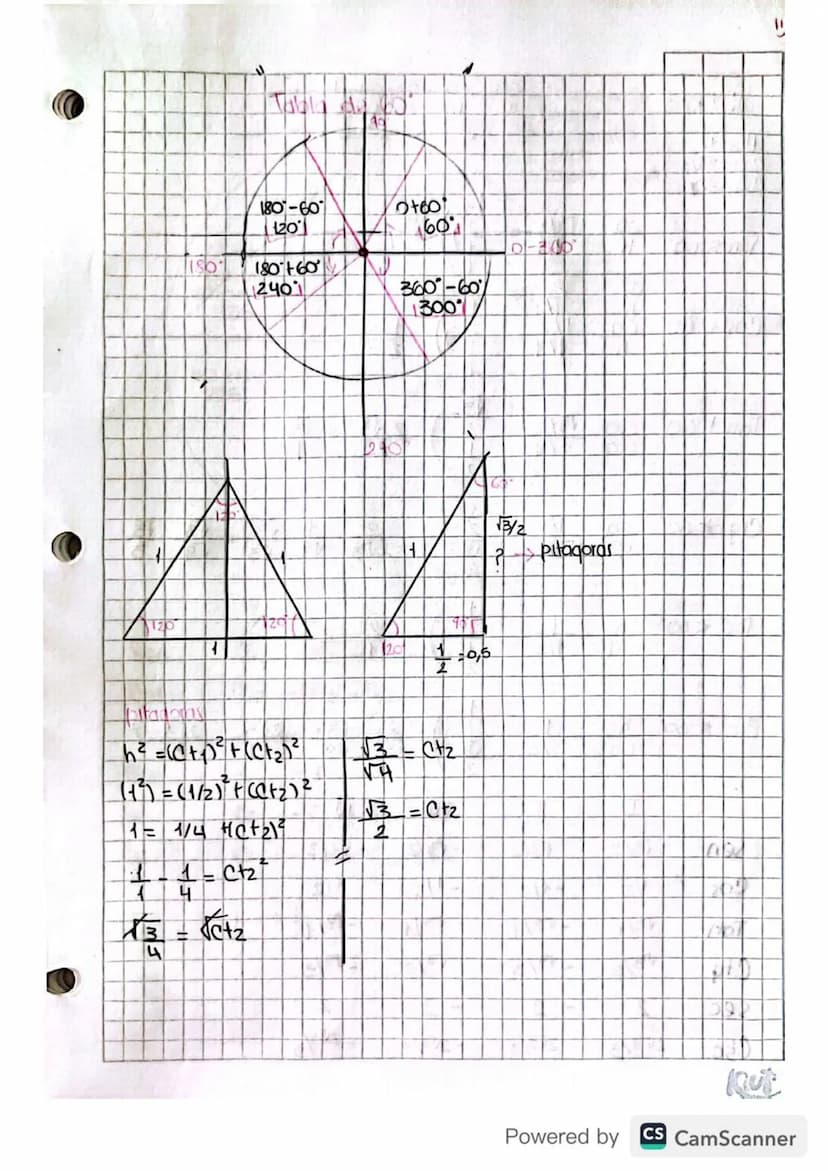 Tabla de 60°
90
180°-60°
120°
0+60°
60°
180°
0°-360°
180°+60°
240°
360°-60°
300°
1
1
120°
120°
1
60°
1
√3/2
? → pitagoras
90°
120°
1/2 = 0,5
pitagoras
h² = (Ct1)² + (Ct2)²
(1²) = (1/2)² + (Ct2)²
1 = 1/4 + (Ct2)²
1/1 - 1/4 = Ct2²
√3/4 = √Ct2
√3/√4 = Ct2
√3/2 = Ct2
Powered by CS CamScanner